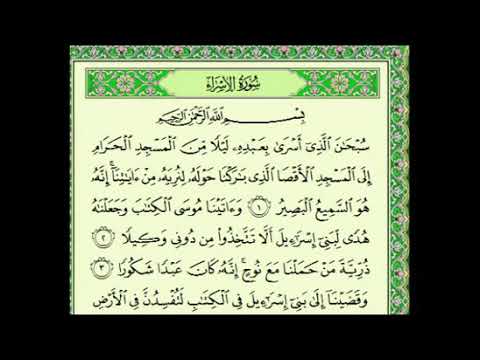 سُورَةُ الْإِسْرَاءِ
بِسْمِ اللَّهِ الرَّحْمَٰنِ الرَّحِيمِ
سُبْحَٰنَ الَّذِىٓ أَسْرَىٰ بِعَبْدِهِۦ لَيْلًا مِّنَ الْمَسْجِدِ الْحَرَامِ
إِلَى الْمَسْجِدِ الْأَقْصَا الَّذِى بَٰرَكْنَا حَوْلَهُۥ لِنُرِيَهُۥ مِنْ ءَايَٰتِنَآ ۚ إِنَّهُۥ
هُوَ السَّمِيعُ الْبَصِيرُ ﴿١﴾ وَءَاتَيْنَا مُوسَى الْكِتَٰبَ وَجَعَلْنَٰهُ
هُدًى لِّبَنِىٓ إِسْرَٰٓءِيلَ أَلَّا تَتَّخِذُوا۟ مِن دُونِى وَكِيلًا ﴿٢﴾
ذُرِّيَّةَ مَنْ حَمَلْنَا مَعَ نُوحٍ ۚ إِنَّهُۥ كَانَ عَبْدًا شَكُورًا ﴿٣﴾
وَقَضَيْنَآ إِلَىٰ بَنِىٓ إِسْرَٰٓءِيلَ فِى الْكِتَٰبِ لَتُفْسِدُنَّ فِى الْأَرْضِ